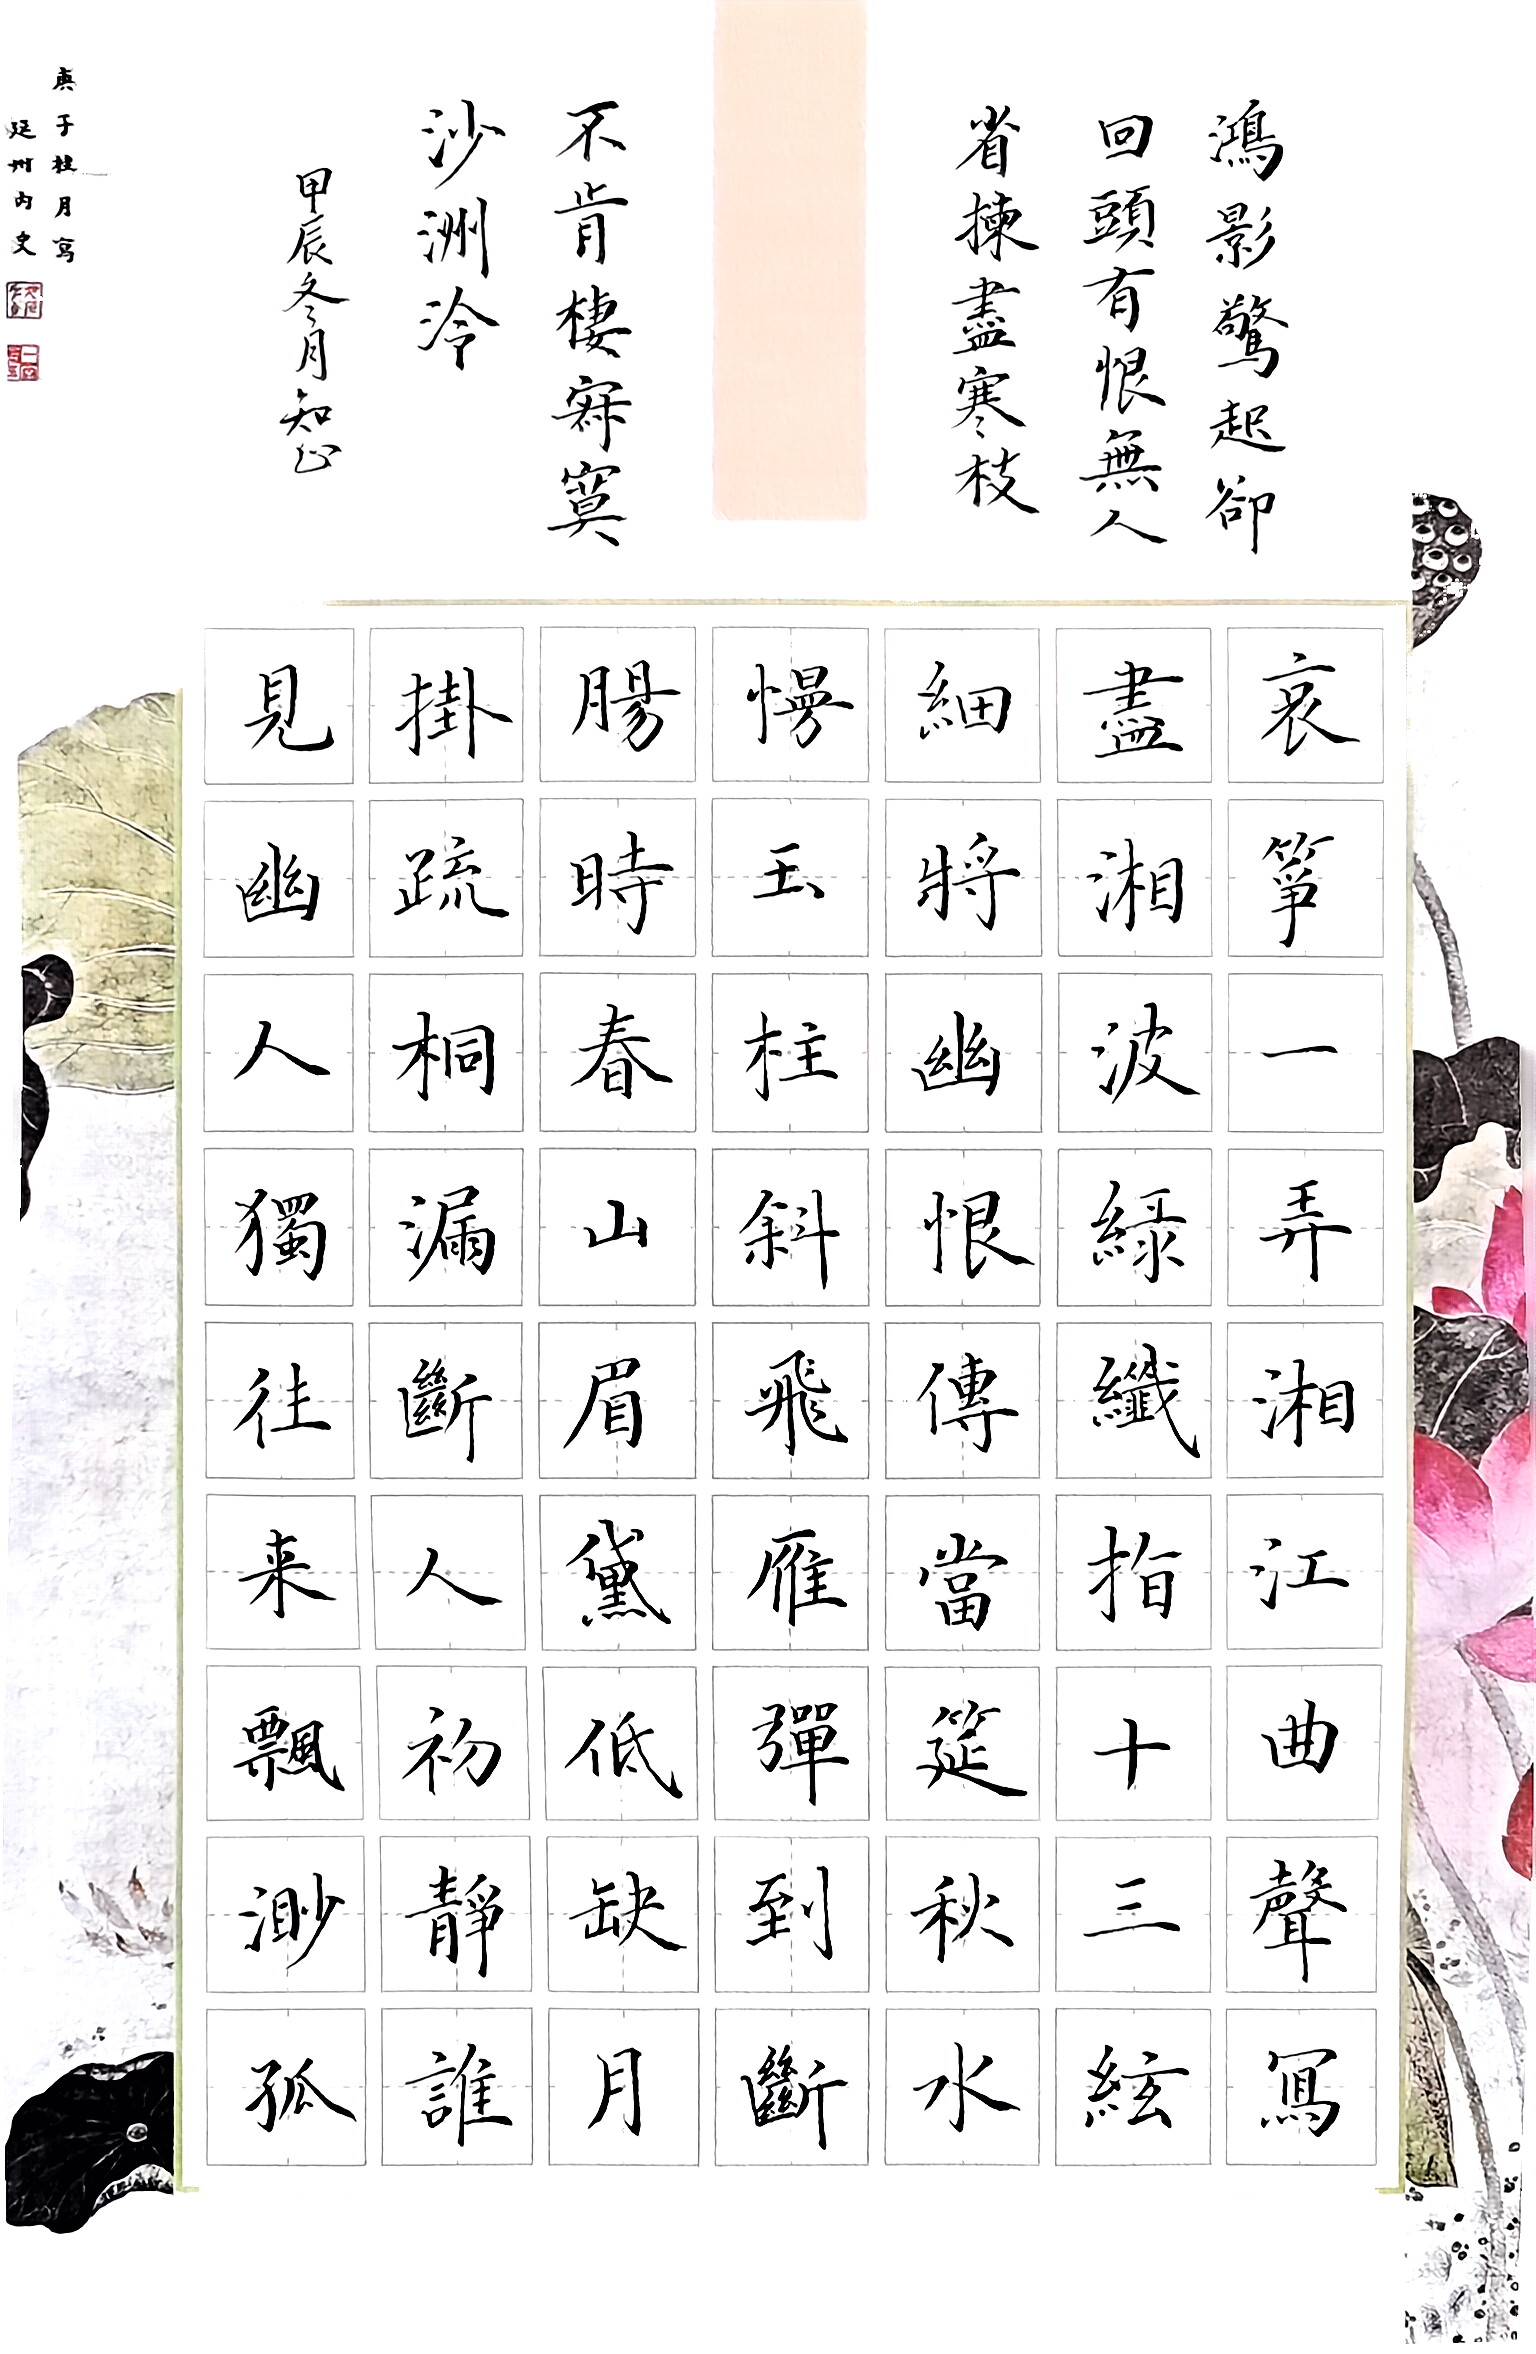 哀箏一弄湘江曲聲冩
盡湘波綠纖指十三絃
細將幽恨傳當筵秋水
慢玉柱斜飛雁彈到斷
腸時春山眉黛低缺月
掛疏桐漏斷人初靜誰
見幽人獨往来飄渺孤
鴻影驚起卻
回頭有恨無人
省揀盡寒枝
不肯棲寂寞
沙洲泠
甲辰冬月知止
庚子桂月寫
延州內史